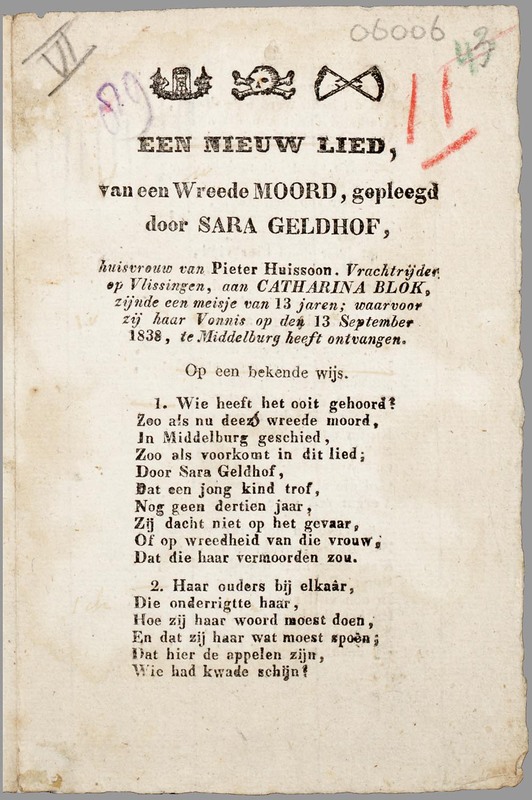 VI
06006
43
89
11
EEN NIEUW LIED,
van een Wreede MOORD, gepleegd
door SARA GELDHOF,
huisvrouw van Pieter Huissoon. Vrachtrijder
op Vlissingen, aan CATHARINA BLOK,
zijnde een meisje van 13 jaren; waarvoor
zij haar Vonnis op den 13 September
1838, te Middelburg heeft ontvangen.
Op een bekende wijs.
1. Wie heeft het ooit gehoord?
Zoo als nu deez' wreede moord,
In Middelburg geschied,
Zoo als voorkomt in dit lied;
Door Sara Geldhof,
Dat een jong kind trof,
Nog geen dertien jaar,
Zij dacht niet op het gevaar,
Of op wreedheid van die vrouw,
Dat die haar vermoorden zou.
2. Haar ouders bij elkaâr,
Die onderrigtte haar,
Hoe zij haar woord moest doen,
En dat zij haar wat moest spoên;
Dat hier de appelen zijn,
Wie had kwade schijn?